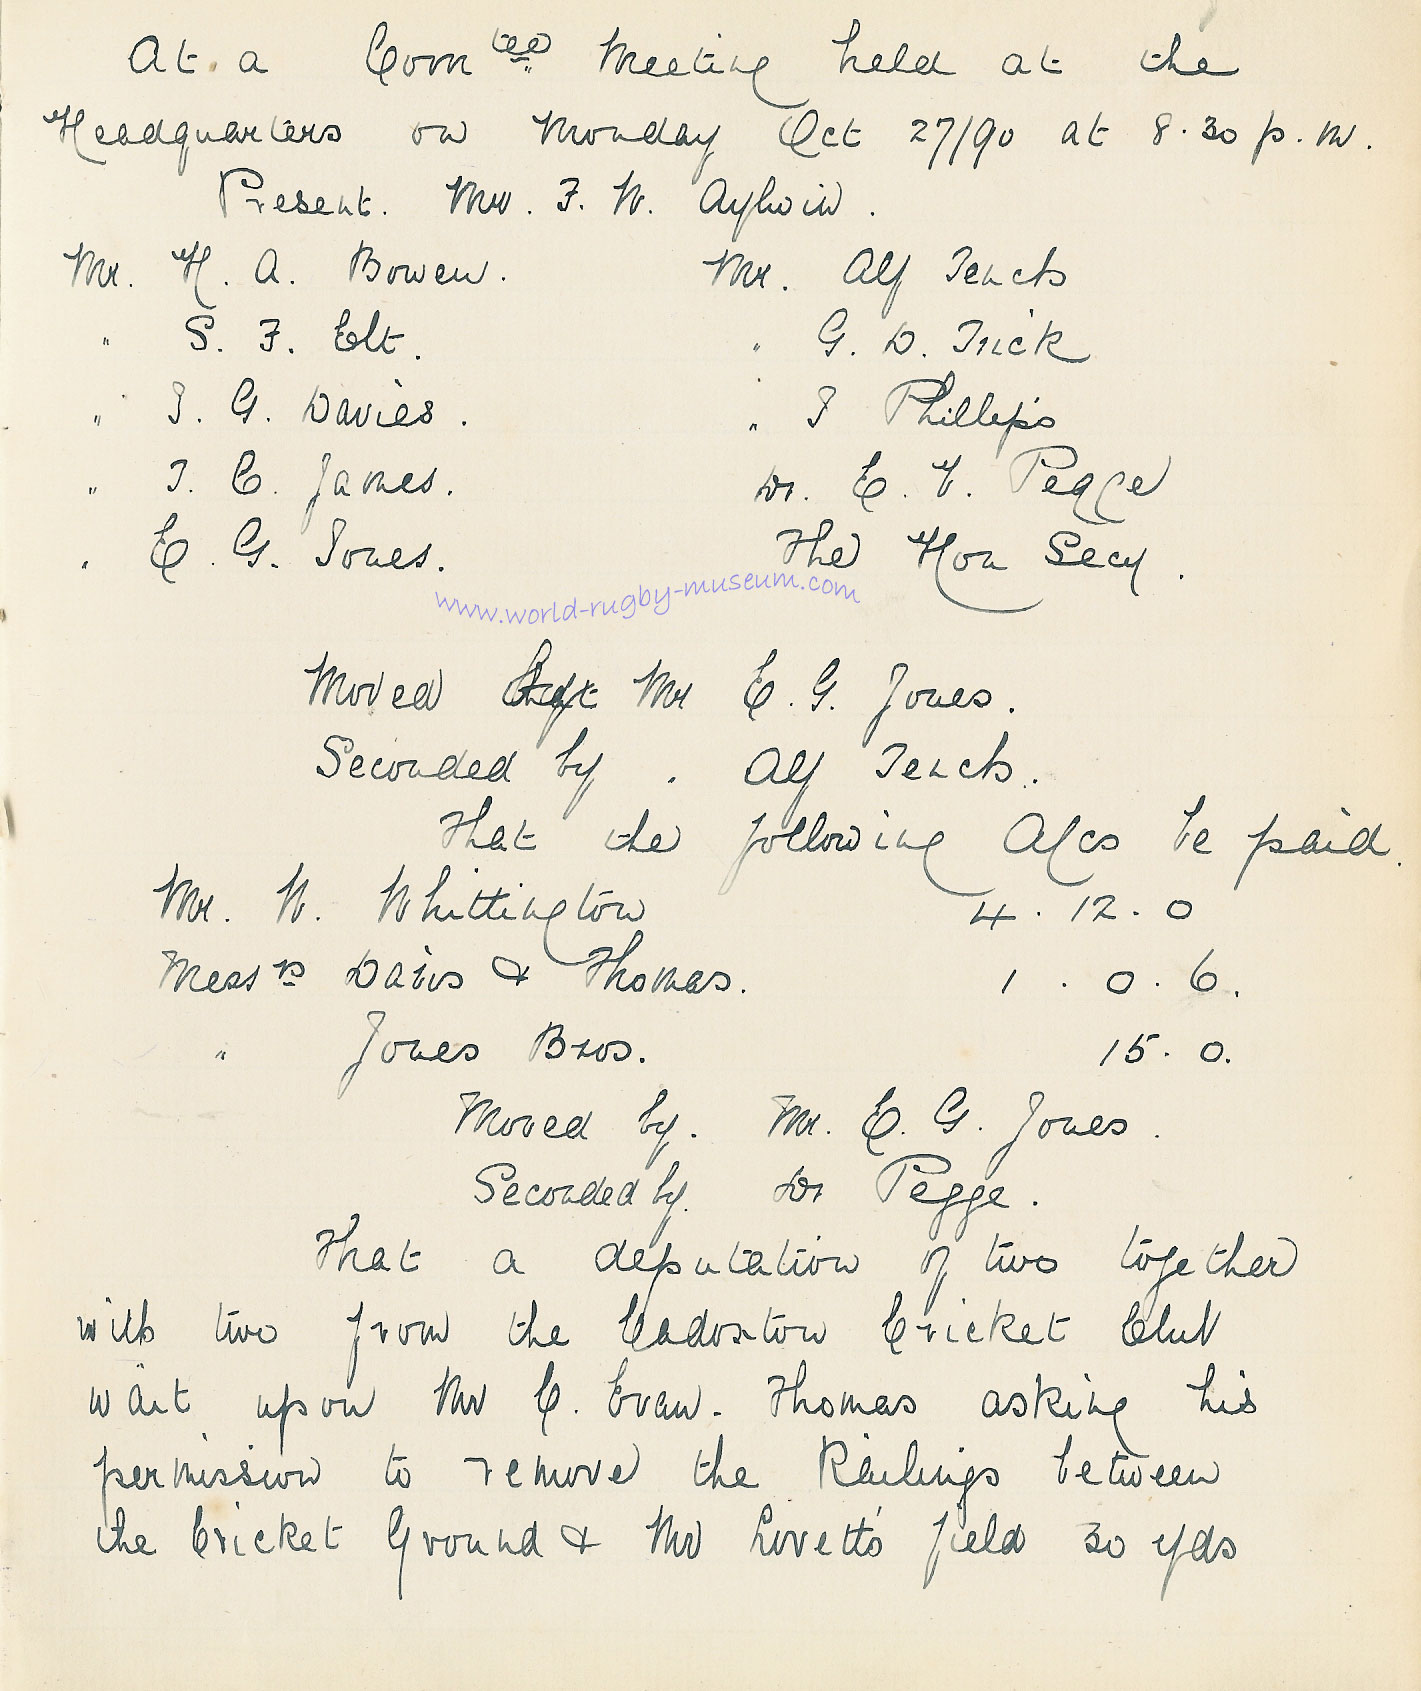 At a Com<sup>tee</sup> Meeting held at the
Headquarters on Monday Oct 27/90 at 8.30 p.m.
Present. Mr. F. W. Aylwin.
Mr. H. A. Bowen. Mr. Alf Tench
" S. F. Elt. " G. D. Trick
" J. G. Davies. " J Phillips
" T. C. James. Dr. E. V. Pegge
" E. G. Jones. The Hon Secy.
www.world-rugby-museum.com
Moved by Mr E. G. Jones.
Seconded by . Alf Tench.
That the following A/cs be paid.
Mr. W. Whittington 4. 12. 0
Mess<sup>rs</sup> Davis & Thomas. 1. 0. 6.
" Jones Bros. 15. 0.
Moved by. Mr. E. G. Jones.
Seconded by. Dr Pegge.
That a deputation of two together
with two from the Cadoxton Cricket Club
wait upon Mr C. Evan. Thomas asking his
permission to remove the Railings between
the Cricket Ground & Mr Lovett's field 30 yds